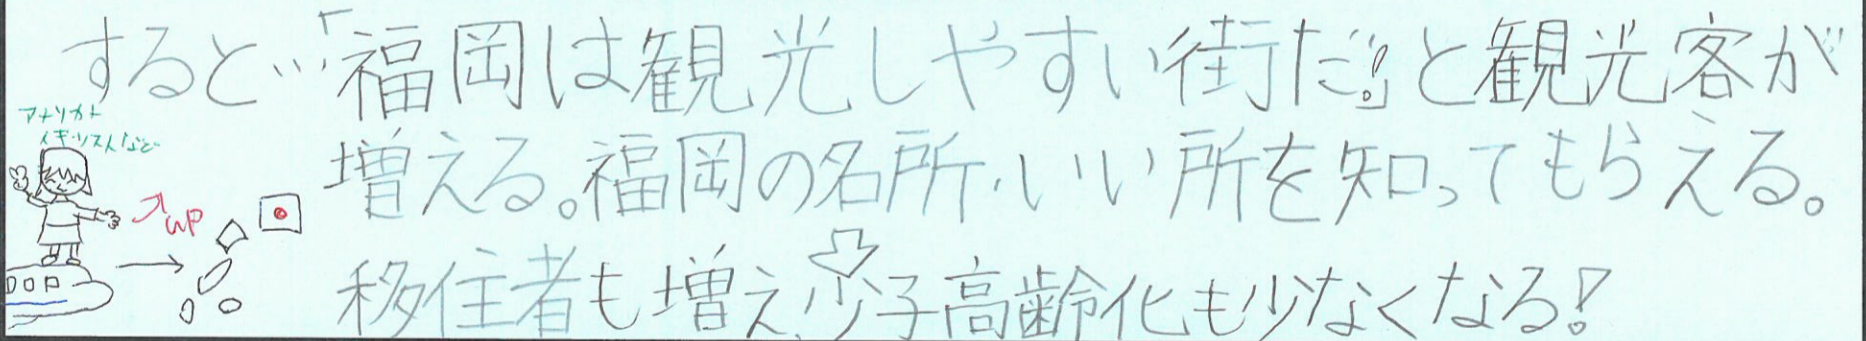 すると…「福岡は観光しやすい街だ!」と観光客が
増える。福岡の名所・いい所を知ってもらえる。
移住者も増え、少子高齢化も少なくなる!
アメリカ人
イギリス人など
UP